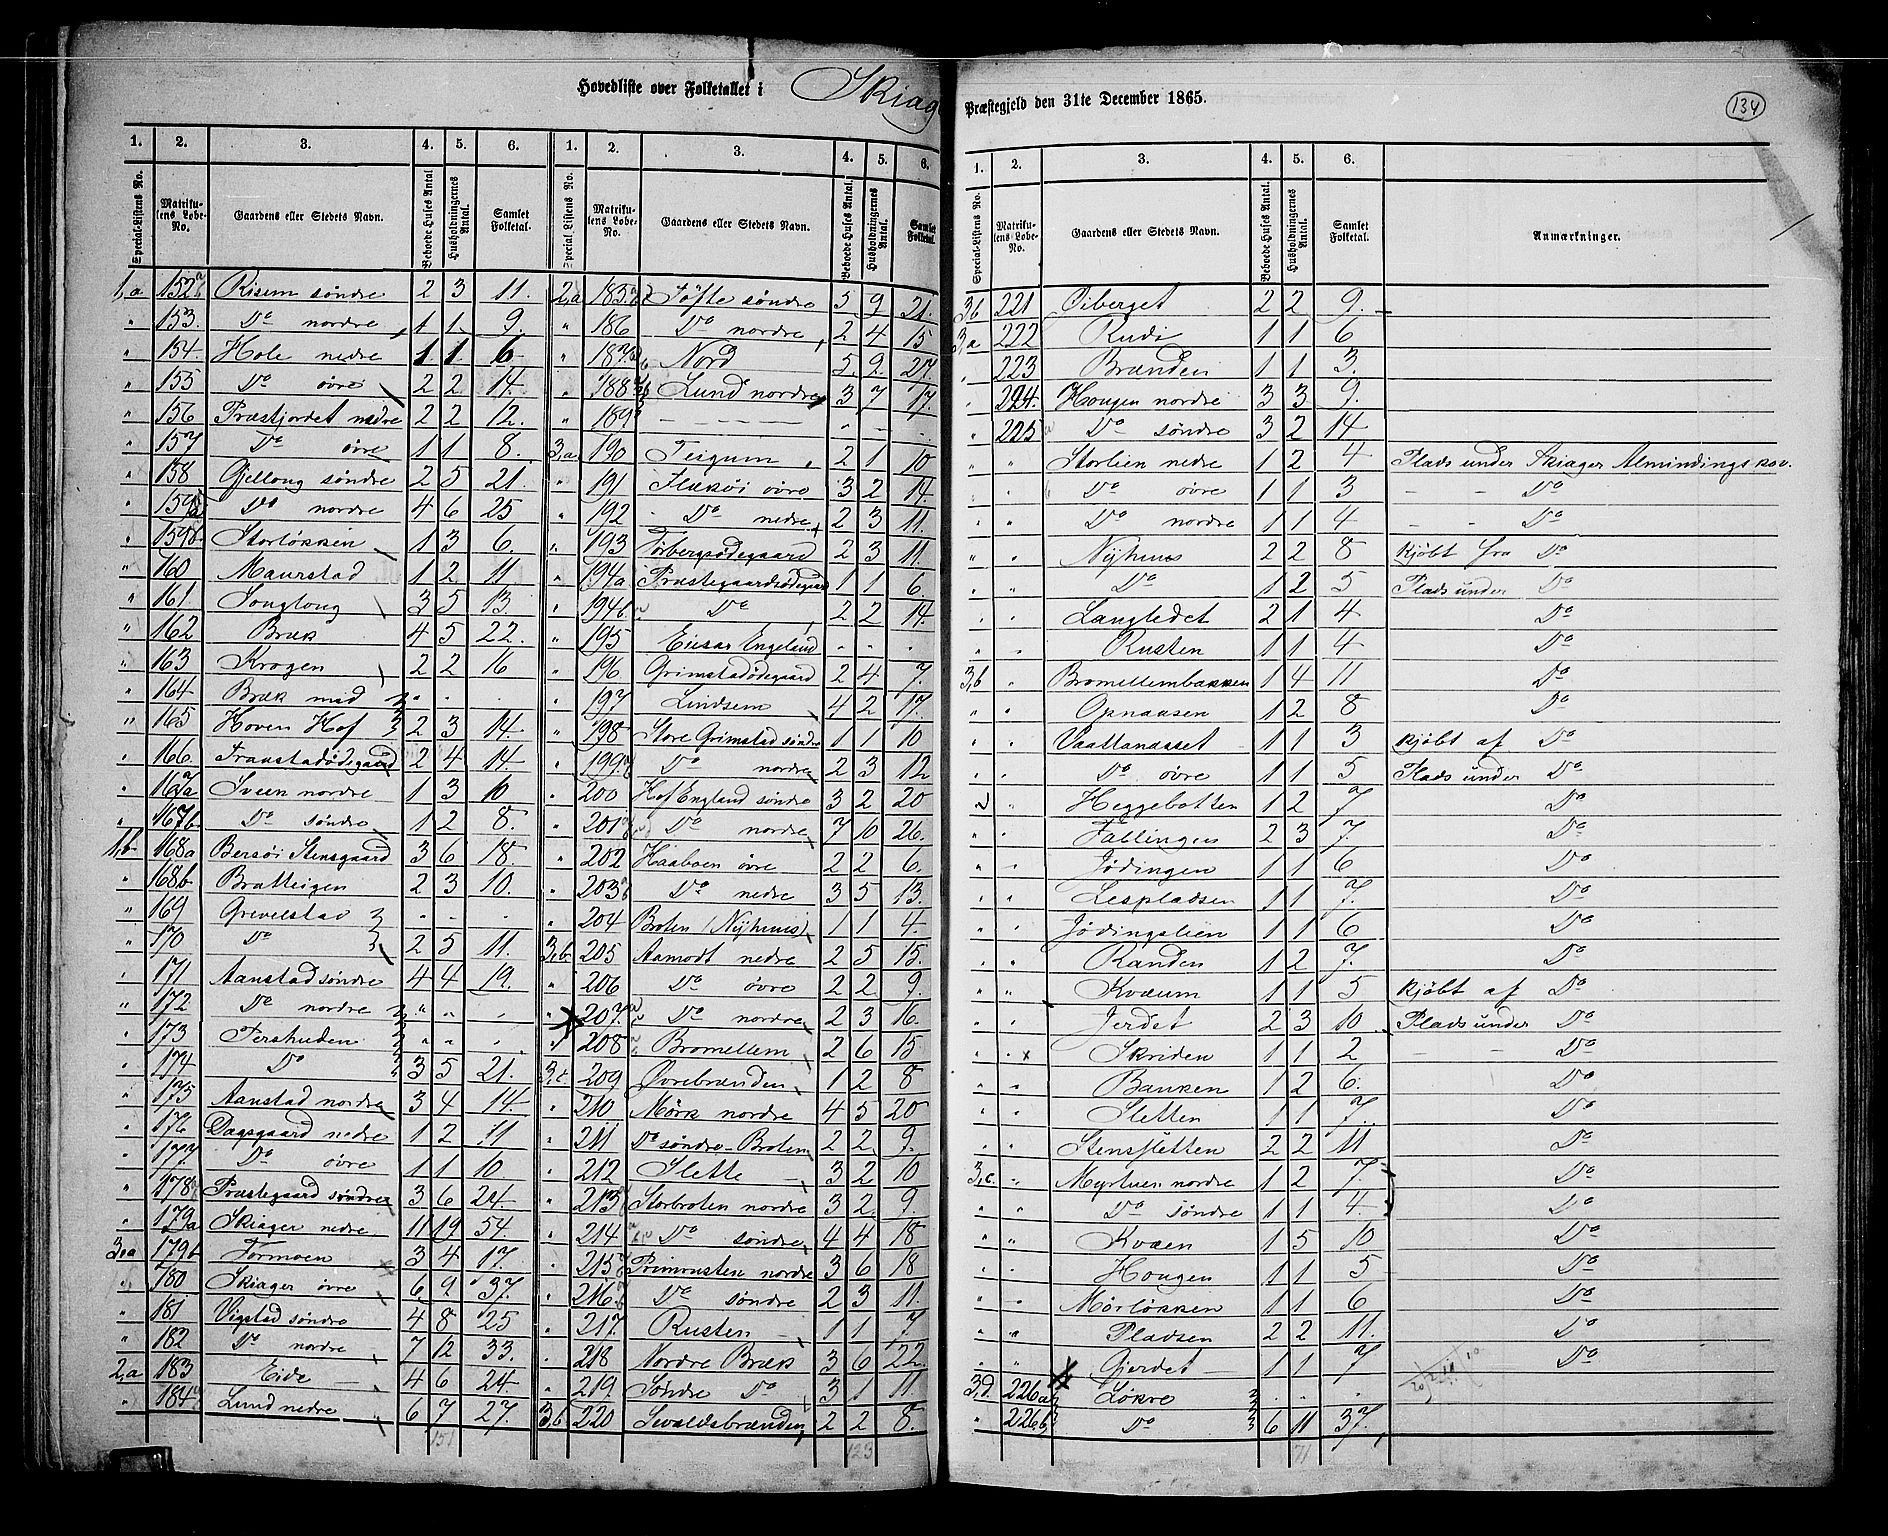 Hovedliste over Folketallet i Skiager Præstegjeld den 31te December 1865.
134
1. 2. 3. 4. 5. 6. 1. 2. 3. 4. 5. 6. 1. 2. 3. 4. 5. 6.
Special-Listens No. Matrikulens Løbe-No. Gaardens eller Stedets Navn. Beboede Huses Antal Husholdningernes Antal. Samlet Folketal.
Special Listens No. Matrikulens Løbe-No. Gaardens eller Stedets Navn. Beboede Huses Antal. Husholdningernes Antal. Samlet Folketal.
Special-Listens No. Matrikulens Løbe-No. Gaardens eller Stedets Navn. Beboede Huses Antal. Husholdningernes Antal. Samlet Folketal. Anmærkninger.
1,a 152 Risem søndre 2 3 11.
" 153. Do nordre 1 1 9.
" 154. Hole nedre 1 1 6
" 155 Do øvre 2 2 14.
" 156 Præstjordet nedre 2 2 12.
" 157 Do øvre 1 1 8.
" 158 Gjellong søndre 2 5 21.
" 159a Do nordre 4 6 25
" 159b Storløkken 1 3 6.
" 160 Maurstad 1 2 11
" 161 Songlong 3 5 13.
" 162 Bræk 4 5 22.
" 163 Krogen 2 2 16
" 164 Bræk med " . .
" 165 Hoven Hof 2 3 14.
" 166 Franstadødegaard 2 4 14.
" 167a Sveen nordre 1 3 10
" 167b. Do søndre 1 2 8.
1b 168a Bersøi Stensgaard 3 6 18
" 168b Bratteigen 2 3 10.
" 169 Grevelstad " " "
" 170 Do 2 5 11.
" 171 Aanstad søndre 4 4 19.
" 172 Do nordre " " "
" 173 Tershuden " " "
" 174 Do 3 5 21.
" 175 Aanstad nordre 3 4 14.
" 176 Dagsgaard nedre 1 2 11
" 177 Do øvre 1 1 10
" 178 Præstegaard søndre 3 6 24.
" 179a Skiager nedre 11 19 54.
3,a 179b Formoen 3 4 17.
" 180 Skiager øvre 6 9 37.
" 181 Vigstad søndre 4 8 25
" 182 Do nordre 7 12 33.
2,a 183 Eide 4 6 24.
" 184 Lund nedre 6 7 27.
151
2,a 185 Tofte søndre 5 9 21.
" 186 Do nordre 2 4 15
" 187 Nord 5 9 27
" 188 Lund nordre 3 7 17.
" 189 — — — " .
3,a 190 Teigum 2 1 10
" 191 Flækøi øvre 3 2 14.
" 192 Do nedre 2 3 11.
" 193 Torbergsødegaard 2 3 11.
" 194a Præstegaardsødegaard 1 1 6.
" 194b. Do 2 2 14.
" 195 Eisar Engeland . . .
" 196 Grimstadødegaard 2 4 7.
" 197 Lindsem 4 2 17.
" 198 Store Grimstad søndre 1 1 10
" 199 Do nordre 2 3 12
" 200 Hof England søndre 3 2 20
" 201 Do nordre 7 10 26.
" 202 Haaboen øvre 2 2 6.
" 203 Do nedre 3 5 13.
" 204 Broten (Nyhuus) 1 1 4.
3,b. 205 Aamodt nedre 2 5 15.
" 206 Do øvre 2 2 9.
" 207 Do nordre 2 3 16.
" 208 Bromellem 2 6 15
3,c 209 Øvrebrænden 1 2 8
" 210 Mörk nordre 4 5 20
" 211 Do søndre - Broten 2 2 9.
" 212 Slette 3 2 10
" 213 Storbroten nordre 3 2 9.
" 214 Do søndre 4 4 18
" 215 Prinrusten nordre 3 6 18
" 216 Do søndre 2 3 11.
" 217. Rusten 1 1 7
" 218 Nordre Bræk 3 6 22.
" 219 Søndre Do 3 1 11.
3,b 220 Sevaldsbrænden 2 2 8.
123
3,b 221 Oiberget 2 2 9.
3,a 222 Rudi 1 1 6
" 223 Brænden 1 1 3.
" 224. Hougen nordre 3 3 9.
" 225 Do søndre 3 2 14
" " Storlien nedre 1 2 4 Plads under Skiager Almindingskov.
" " Do øvre 1 1 3 — — Do
" " Do nordre 1 1 4 — — Do
" " Nyhuus 2 2 8 kjøbt fra Do
" " Do 1 2 5 Plads under Do
" " Langledet 2 1 4 Do
" " Rusten 1 1 4 Do
3,b " Bromellembakken 1 4 11 Do
" " Opnaasen 1 2 8 Do
" " Vaatlandsset 1 1 3 kjøbt af Do
" " Do øvre 1 1 5 Plads under Do
" " Heggebotten 1 2 7 Do
" " Tablingen 2 3 7 Do
" " Jødingen 1 1 6 Do
" " Lespladsen 1 1 7. Do
" " Jødingslien 1 1 6 Do
" " Randen 1 2 7. Do
" " Kvæum 1 1 5 kjøbt af Do
" " Jerdet 2 3 10 Plads under Do
" " Skriden 1 1 2 — — Do
" " Banken 1 2 6. Do
" " Sletten 1 1 7. Do
" " Stensletten 2 2 11 Do
3,c. " Myrtuen nordre 1 2 7. Do
" " Do søndre 1 1 4. Do
" " Kvæen 1 5 10 Do
" " Hougen 1 1 5 Do
" " Mørløkken 1 1 6 Do
" " Pladsen 2 2 11. Do
" " Gjerdet 1 1 7 Do
3,d. 226a Løkre . . .
" 226b Do 6 11 37.
71